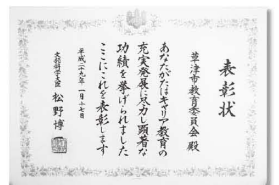 表彰状
草津市教育委員会 殿
あなたがたはキャリア教育の
充実発展に尽力し顕著な
功績を挙げられました
ここにこれを表彰します
平成二九年一月十七日
文部科学大臣 松野博一